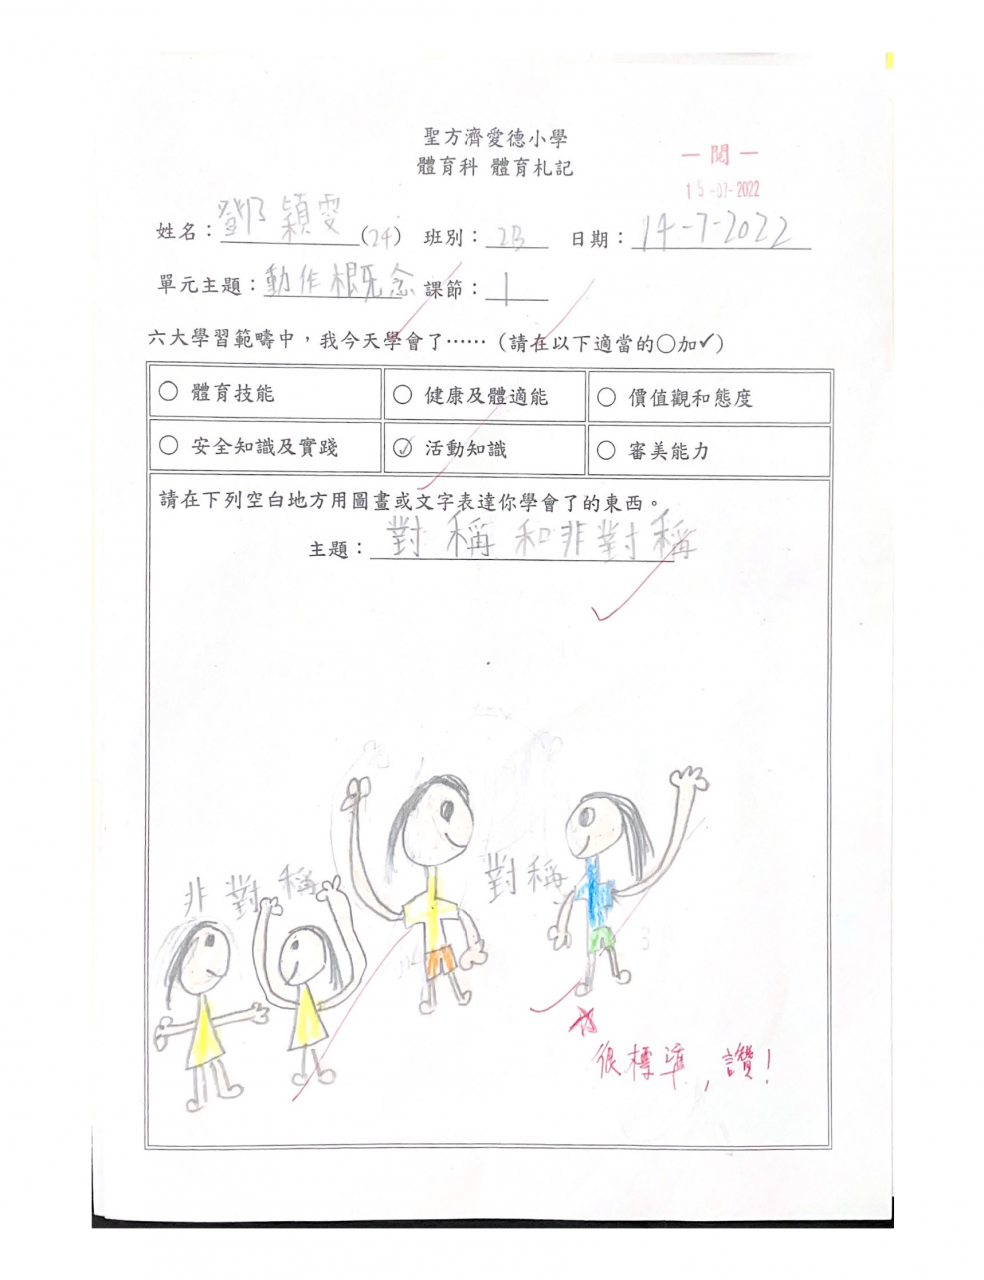 聖方濟愛德小學
體育科 體育札記
一閱一
15-07-2022
姓名：鄧穎雯(24) 班別：2B 日期：14-7-2022
單元主題：動作概念 課節：1
六大學習範疇中，我今天學會了……（請在以下適當的○加✓）
○ 體育技能 ○ 健康及體適能 ○ 價值觀和態度
○ 安全知識及實踐 ✓ 活動知識 ○ 審美能力
請在下列空白地方用圖畫或文字表達你學會了的東西。
主題：對稱和非對稱
非對稱
對稱
很標準，讚！